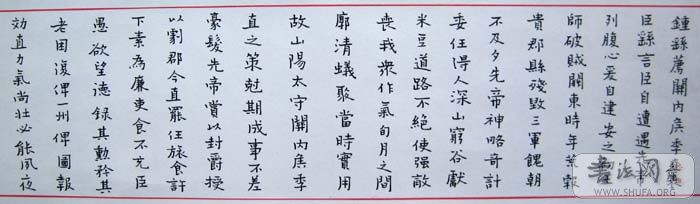 鍾繇薦關內侯季
臣繇言臣自遭遇先
列腹心爰自建安之
師破賊關東時年荒穀
貴郡縣殘毀三軍餽朝
不及夕先帝神略奇計
委任得人深山窮谷獻
米豆道路不絕使強敵
喪我衆作氣旬月之間
廓清蟻聚當時實用
故山陽太守關內侯季
直之策尅期成事不差
豪髮先帝賞以封爵授
以劇郡今直罷任旅食許
下素為廉吏食不充臣
愚欲望德錄其勳矜其
老困復俾一州俾圖報
効直力氣尚壯必能夙夜
书法网
WWW.SHUFA.ORG